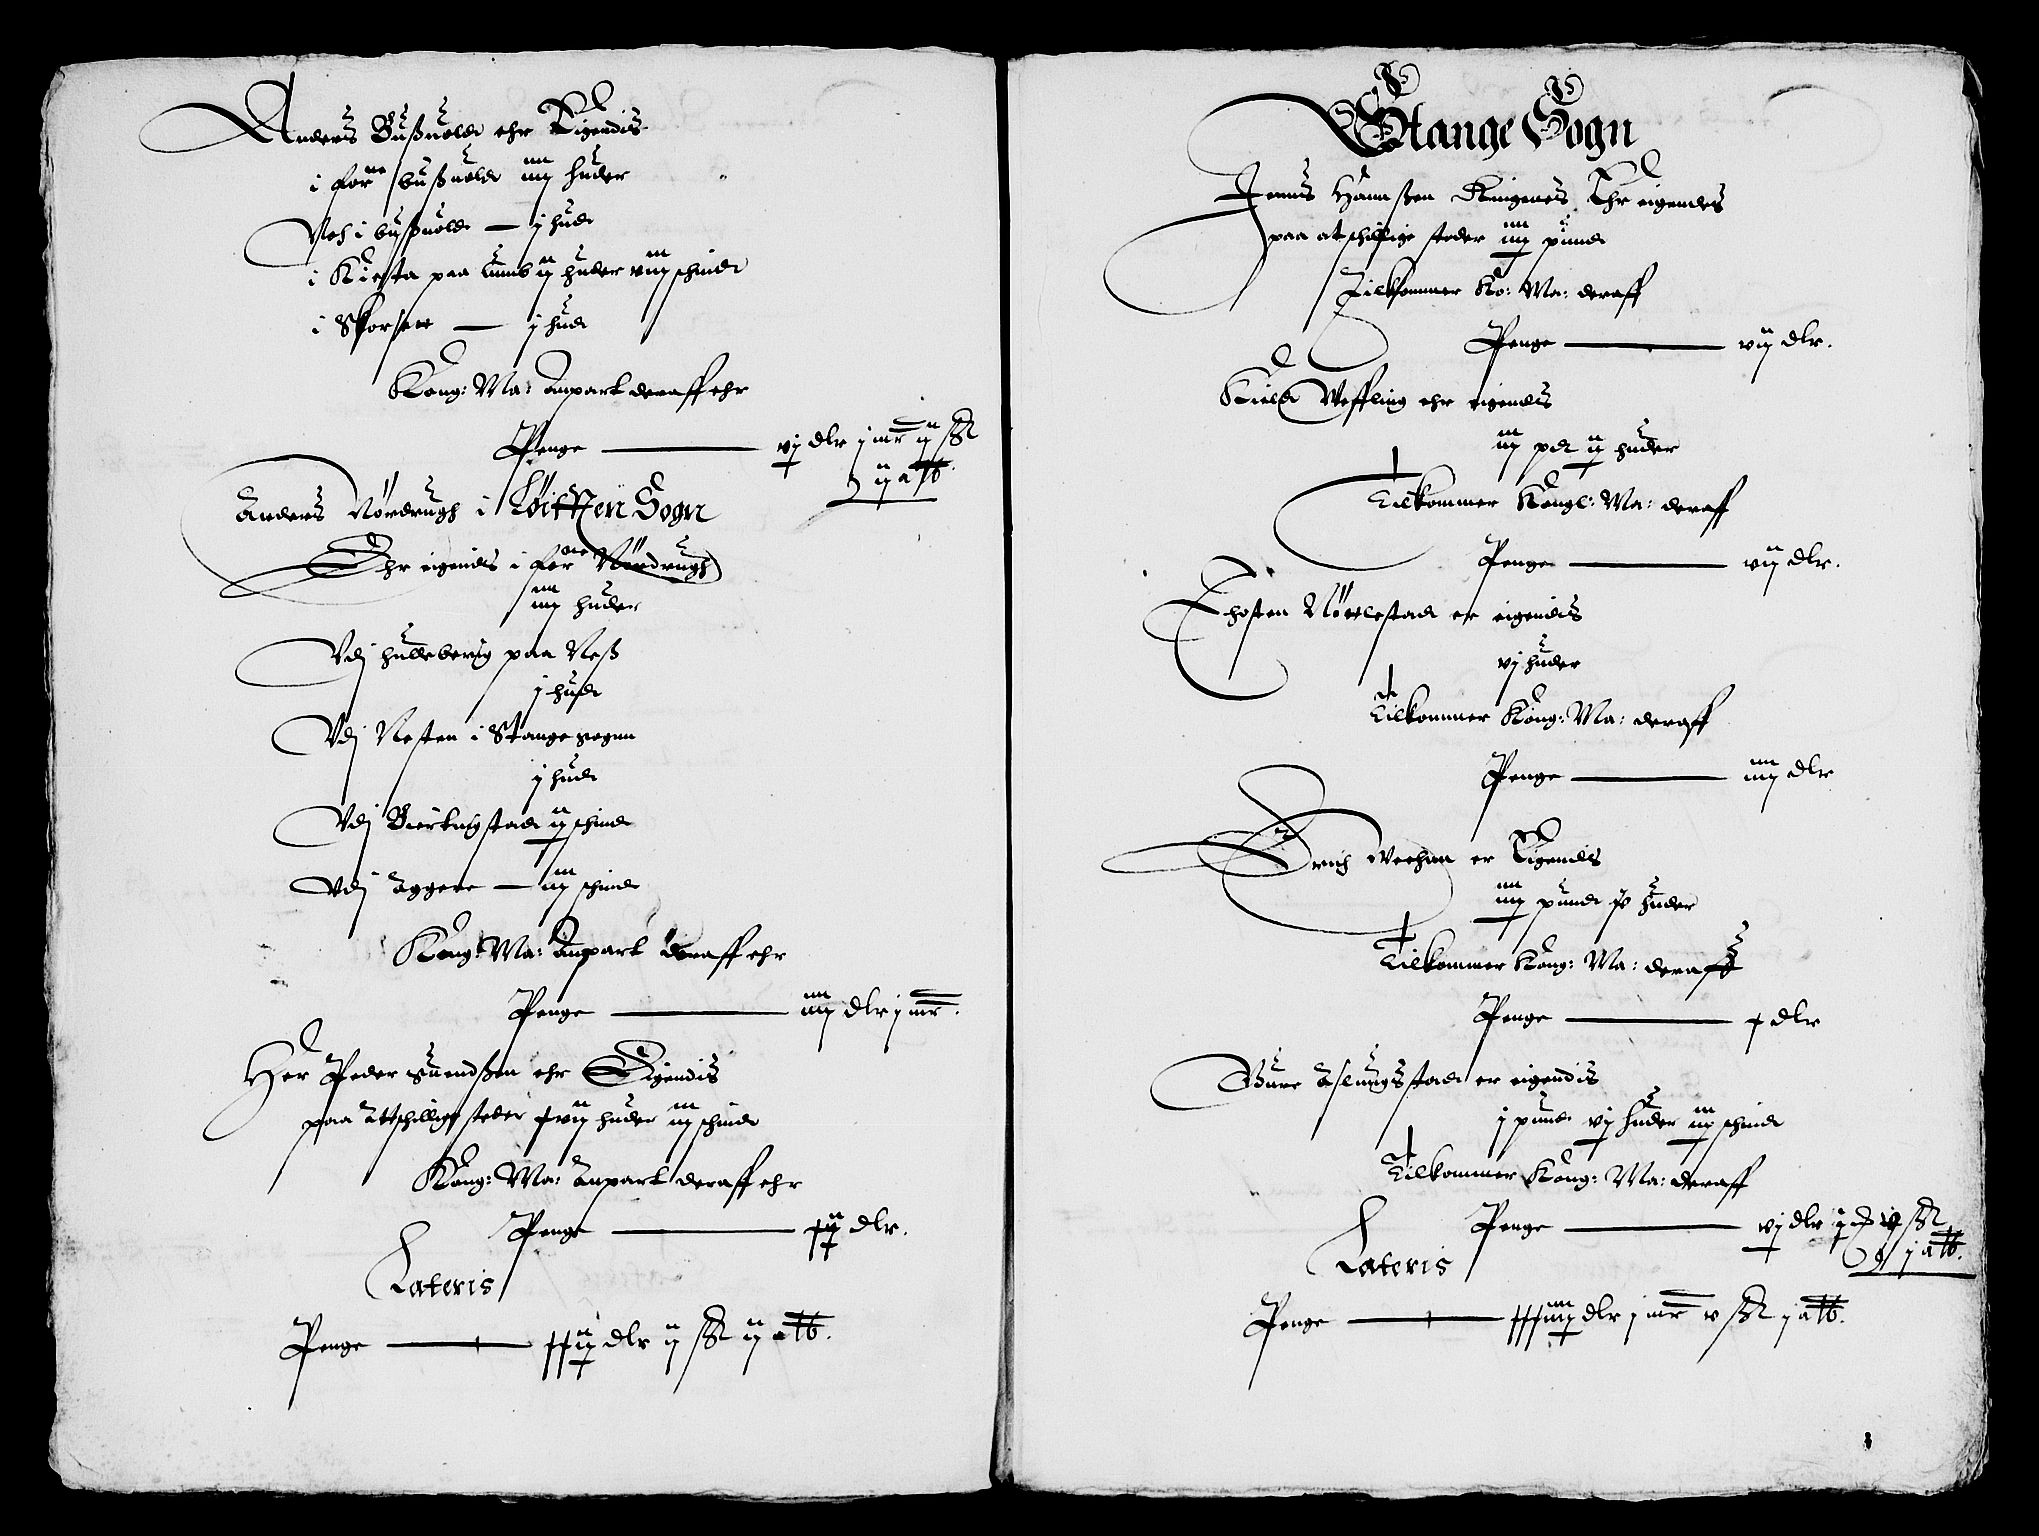 Anders Bußuold ehr Eigendis
i forne bußuold iiij huder
Noch i bußuold — j hud
i Kiesta paa Lumb ij huder viij schind
i Skorsen — j hud
Kong: Ma: Anpart deraff ehr
Penge — vj dlr j mr ij sk
ij alb.
Anders Nørdrugh i Løitten Sogn
Ehr eigendis i forne Nørdrugh
iiij huder
Vdj hulleberig paa Neß
j hud
Vdj Nesten i Stange sogen
j hud
Vdj Bierknigstad ij schind
Vdj Aggere — iij schind
Kong: Ma: Anpart deraff ehr
Penge — iiij dlr j mr.
Her Peder Suendßen ehr Eigendis
paa Attschillige steder xvij huder iij schind
Kong: Ma: Anpart deraff ehr
Penge — xij dlr.
Lateris
Penge — xxij dlr ij sk ij alb.
Stange Sogn
Jenns Hannßen Ringenes Ehr eigendes
paa atschillige steder iiij pund
Tilkommer Ko: Ma: deraff
Penge — vij dlr.
Kield Weffling ehr eigendis
iij pd ij huder
Tilkommer Kongl: Ma: deraff
Penge — vij dlr.
Thosten Nøttestad er eigendis
vj huder
Tilkommer Kong: Ma: deraff
Penge — iiij dlr
Erich Weehan er Eigendis
iiij pund huder
Tilkommer Kong: Ma: deraff
Penge — x dlr
Gure Aslungsstad er eigendis
j pund vj huder iij schind
Tilkommer Kong: Ma: deraff
Penge — vj dlr sk
j alb.
Lateris
Penge — xxxiiij dlr j mr v sk j alb.